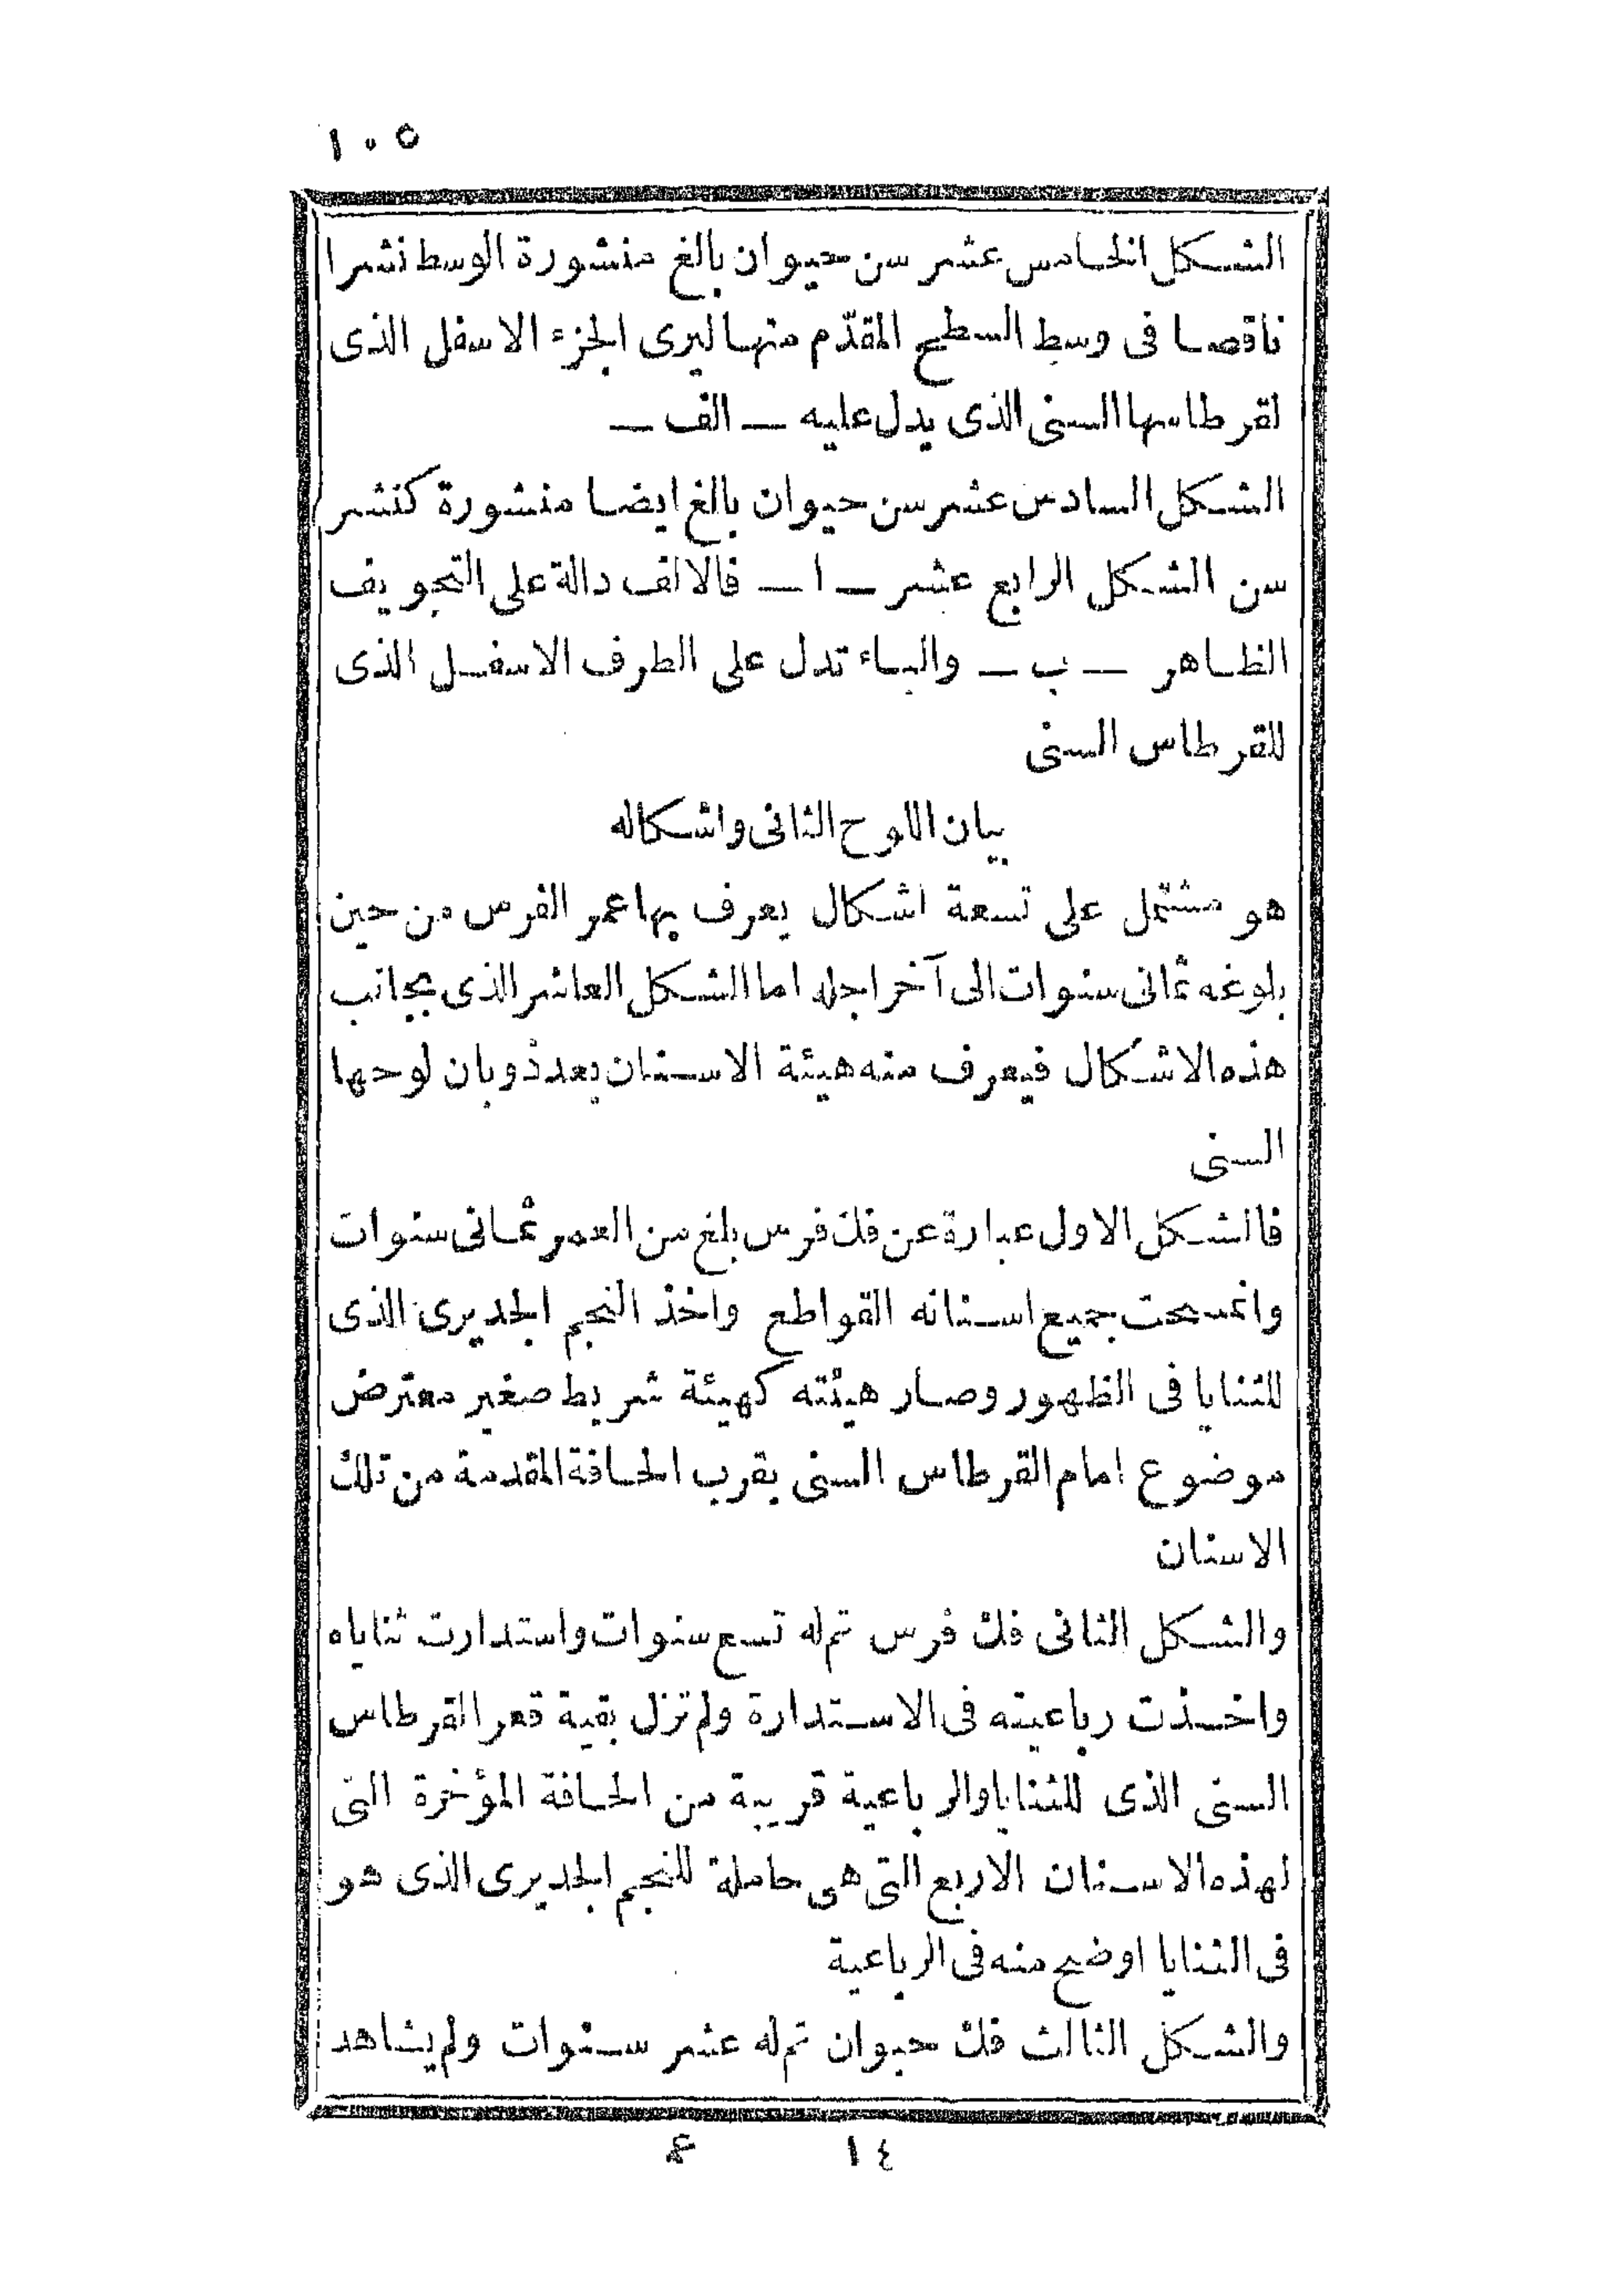 ١٠٥
الشكل الخامس عشر سن حيوان بالغ منشورة الوسط نشرا
ناقصا فى وسط السطح المقدّم منها ليرى الجزء الاسفل الذى
لقرطاسها السنى الذى يدل عليه — الف —
الشكل السادس عشر سن حيوان بالغ ايضا منشورة كنشر
سن الشكل الرابع عشر — ا — فالالف دالة على التجويف
الظاهر — ب — والباء تدل على الطرف الاسفل الذى
للقرطاس السنى
بيان اللوح الثانى واشكاله
هو مشتمل على تسعة اشكال يعرف بها عمر الفرس من حين
بلوغه ثمانى سنوات الى آخر اجله اما الشكل العاشر الذى بجانب
هذه الاشكال فيعرف منه هيئة الاسنان بعد ذوبان لوحها
السنى
فالشكل الاول عبارة عن فك فرس بلغ من العمر ثمانى سنوات
وانمسحت جميع اسنانه القواطع واخذ النجم الجديرى الذى
للثنايا فى الظهور وصار هيئته كهيئة شريط صغير معترض
موضوع امام القرطاس السنى بقرب الحافة المقدمة من تلك
الاسنان
والشكل الثانى فك فرس تم له تسع سنوات واستدارت ثناياه
واخذت رباعيته فى الاستدارة ولم تزل بقية قعر القرطاس
السنى الذى للثنايا والرباعية قريبة من الحافة المؤخرة التى
لهذه الاسنان الاربع التى هى حاملة للنجم الجديرى الذى هو
فى الثنايا اوضح منه فى الرباعية
والشكل الثالث فك حيوان تم له عشر سنوات ولم يشاهد
١٤